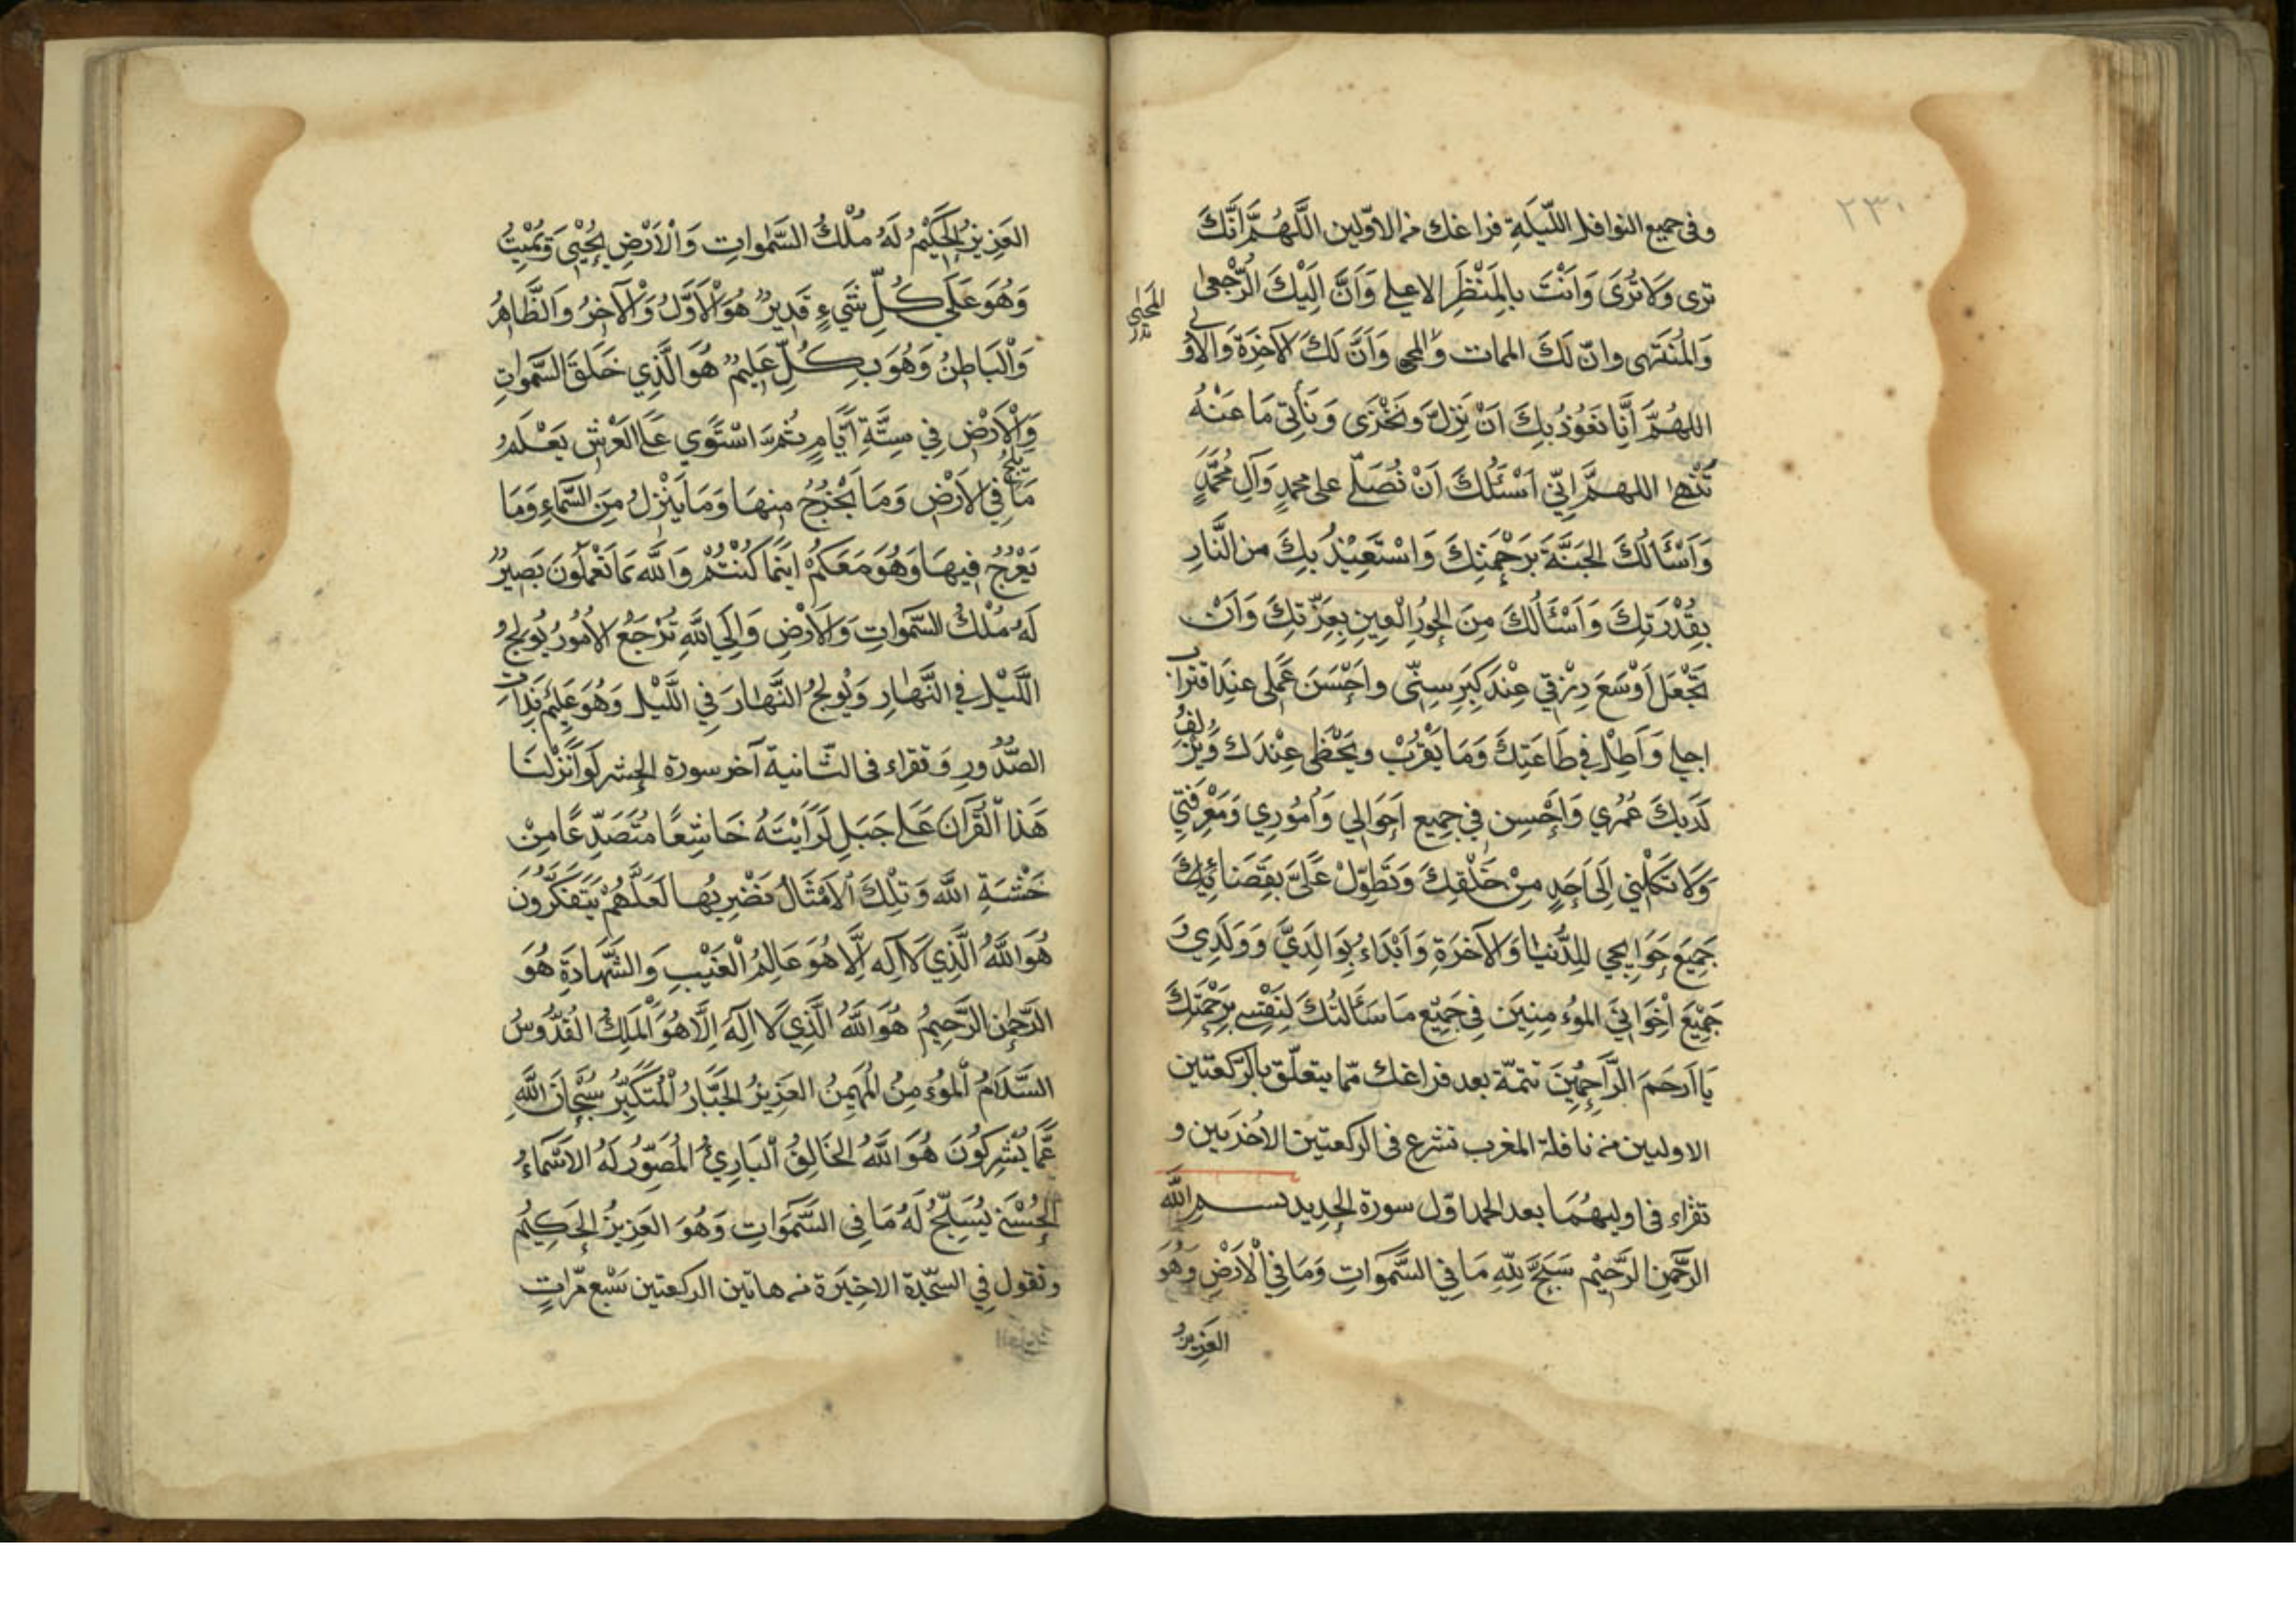 ٢٣٠
وفى جميع النوافل اللّيلَةِ فراغك من الاوّلين اللَّهُمَّ اِنَّكَ
ترى وَلَا تُرَى وَاَنْتَ بِالمَنْظَرِ الاعلى وَاَنَّ اِلَيْكَ الرُّجعى
وَالمُنْتَهى وانّ لَكَ الممات والمحى وَاَنَّ لَكَ الآخِرَةَ وَالاُولى
اللهُمَّ اِنَّا نَعُوْذُ بِكَ اَنْ نَزِلَّ وَنَخْزَى وَنَأتى مَا عَنْهُ
تَنْهى اللهمَّ اِنّي اَسْئَلُكَ اَنْ تُصَلّي على محمدٍ وَآلِ مُحَمَّدٍ
وَاَسْئَالُكَ الجَنَّةَ بِرَحْمَتِكَ وَاسْتَعِيْذُ بِكَ من النَّارِ
بِقُدْرَتِكَ وَاَسْئَالُكَ مِنَ الحُورِ العِينِ بِعِزّتِكَ وَاَنْ
تَجْعَل اَوْسَعَ رِزْقي عِنْدَ كِبَرِ سِنّى واَحْسَنَ عَمَلى عِندَ اقتراب
اجلى وَاَطِلْ فِي طَاعَتِكَ وَمَا يَقْرُبْ ويَحْظى عِنْدَك وَيُزْلِفُ
لَدَيكَ عُمُري وَاَحْسِن فِي جَمِيع اَحْوَالي وَاُمُوري وَمَعْرِفَتي
وَلَا تَكِلْني اِلَى اَحَدٍ مِنْ خَلْقِكَ وَتَطَوّلْ عَلَىَّ بِقَضَائِكَ
جَمِيعَ حَوَايجي لِلدُّنيَا وَالآخرَةِ وَابْدَاء بِوَالِدَيَّ وَوَلَدِي وَ
جَمِيْعَ اِخْوَانِي المؤمِنِينَ فِي جَمِيْعِ مَا سَأَلتُكَ لِنَفْسِي بِرَحْمَتِكَ
يَا اَرحَمَ الرَّاحِمِيْنَ تتمّة بعد فراغك ممّا يتعلّق بالرّكعتين
الاوليين من نافلة المغرب تشرع فى الركعتين الاخريين و
تقراء فى اوليهُمَا بعد الحمد اوّل سورة الحديد بســـمِ الله
الرّحمنِ الرَّحيْم سَبَّحَ لِلّهِ مَا فِي السَّموَاتِ وَمَا فِي الْاَرْضِ وَهُوَ
العَزِيزُ
العَزِيزُ الحَكِيْمُ لَهُ مُلْكُ السَّموَاتِ وَالْاَرْضِ يُحْيِي وَيُمِيْتُ
وَهُوَ عَلَى كُلِّ شَيءٍ قَدِيرٌ هُوَ الْاَوَّلُ وَالْآخِرُ وَالظَّاهِرُ
وَالْبَاطِنُ وَهُوَ بِكُلِّ عَلِيمٌ هُوَ الَّذِي خَلَقَ السَّموَاتِ
وَالْاَرْضَ فِي سِتَّةِ اَيَّامٍ ثُمَّ اسْتَوي عَلَى العَرْشِ يَعْلَمُ
مَا يَلِجُ فِي الاَرْضِ وَمَا يَخْرُجُ مِنهَا وَمَا يَنْزِلُ مِنَ السَّمَاءِ وَمَا
يَعْرُجُ فِيهَا وَهُوَ مَعَكُمْ اَيْنَمَا كُنْتُمْ وَاللهُ بِمَا تَعْمَلُونَ بَصِيرٌ
لَهُ مُلْكُ السَّموَاتِ وَالاَرْضِ وَاِلَي اللَّهِ تُرْجَعُ الاُمُورُ يُولِجُ
اللَّيْلَ فِي النَّهَارِ وَيُولِجُ النَّهَارَ فِي اللَّيْلِ وَهُوَ عَلِيمٌ بِذَاتِ
الصُّدُورِ وَتقراء فى الثّانية آخر سورة الحشر لَوْ اَنْزَلْنَا
هَذَا الْقُرْآنَ عَلَى جَبَلٍ لَرَاَيْتَهُ خَاشِعًا مُتَصَدِّعًا مِنْ
خَشْيَةِ اللَّه وَتِلْكَ الاَمْثَالُ نَضْرِبُهَا لَعَلَّهُمْ يَتَفَكَّرُونَ
هُوَ اللَّهُ الَّذِي لَا اِلَه اِلَّا هُوَ عَالِمُ الْغَيْبِ وَالشَّهَادَةِ هُوَ
الرَّحْمنُ الرَّحِيمُ هُوَ اللَّهُ الَّذِي لَا اِلَهَ اِلَّا هُوَ الْمَلِكُ القُدُّوسُ
السَّلَامُ الْمُؤمِنُ الْمُهَيْمِنُ العَزِيزُ الجَبَّارُ الْمُتَكَبِّرُ سُبْحَانَ اللَّهِ
عَمَّا يُشْرِكُونَ هُوَ اللَّهُ الخَالِقُ الْبَارِئُ الْمُصَوِّرُ لَهُ الاَسْمَاءُ
الحُسْنَى يُسَبِّحُ لَهُ مَا فِي السَّمَوَاتِ وَهُوَ العَزِيزُ الحَكِيْمُ
وتقول فِي السّجْدَة الاخِيْرَة من هاتين الركعتين سَبْع مَرّاتٍ